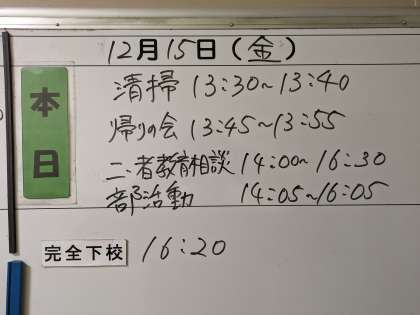 12月15日(金)
本日
清掃 13:30~13:40
帰りの会 13:45~13:55
二者教育相談 14:00~16:30
部活動 14:05~16:05
完全下校 16:20